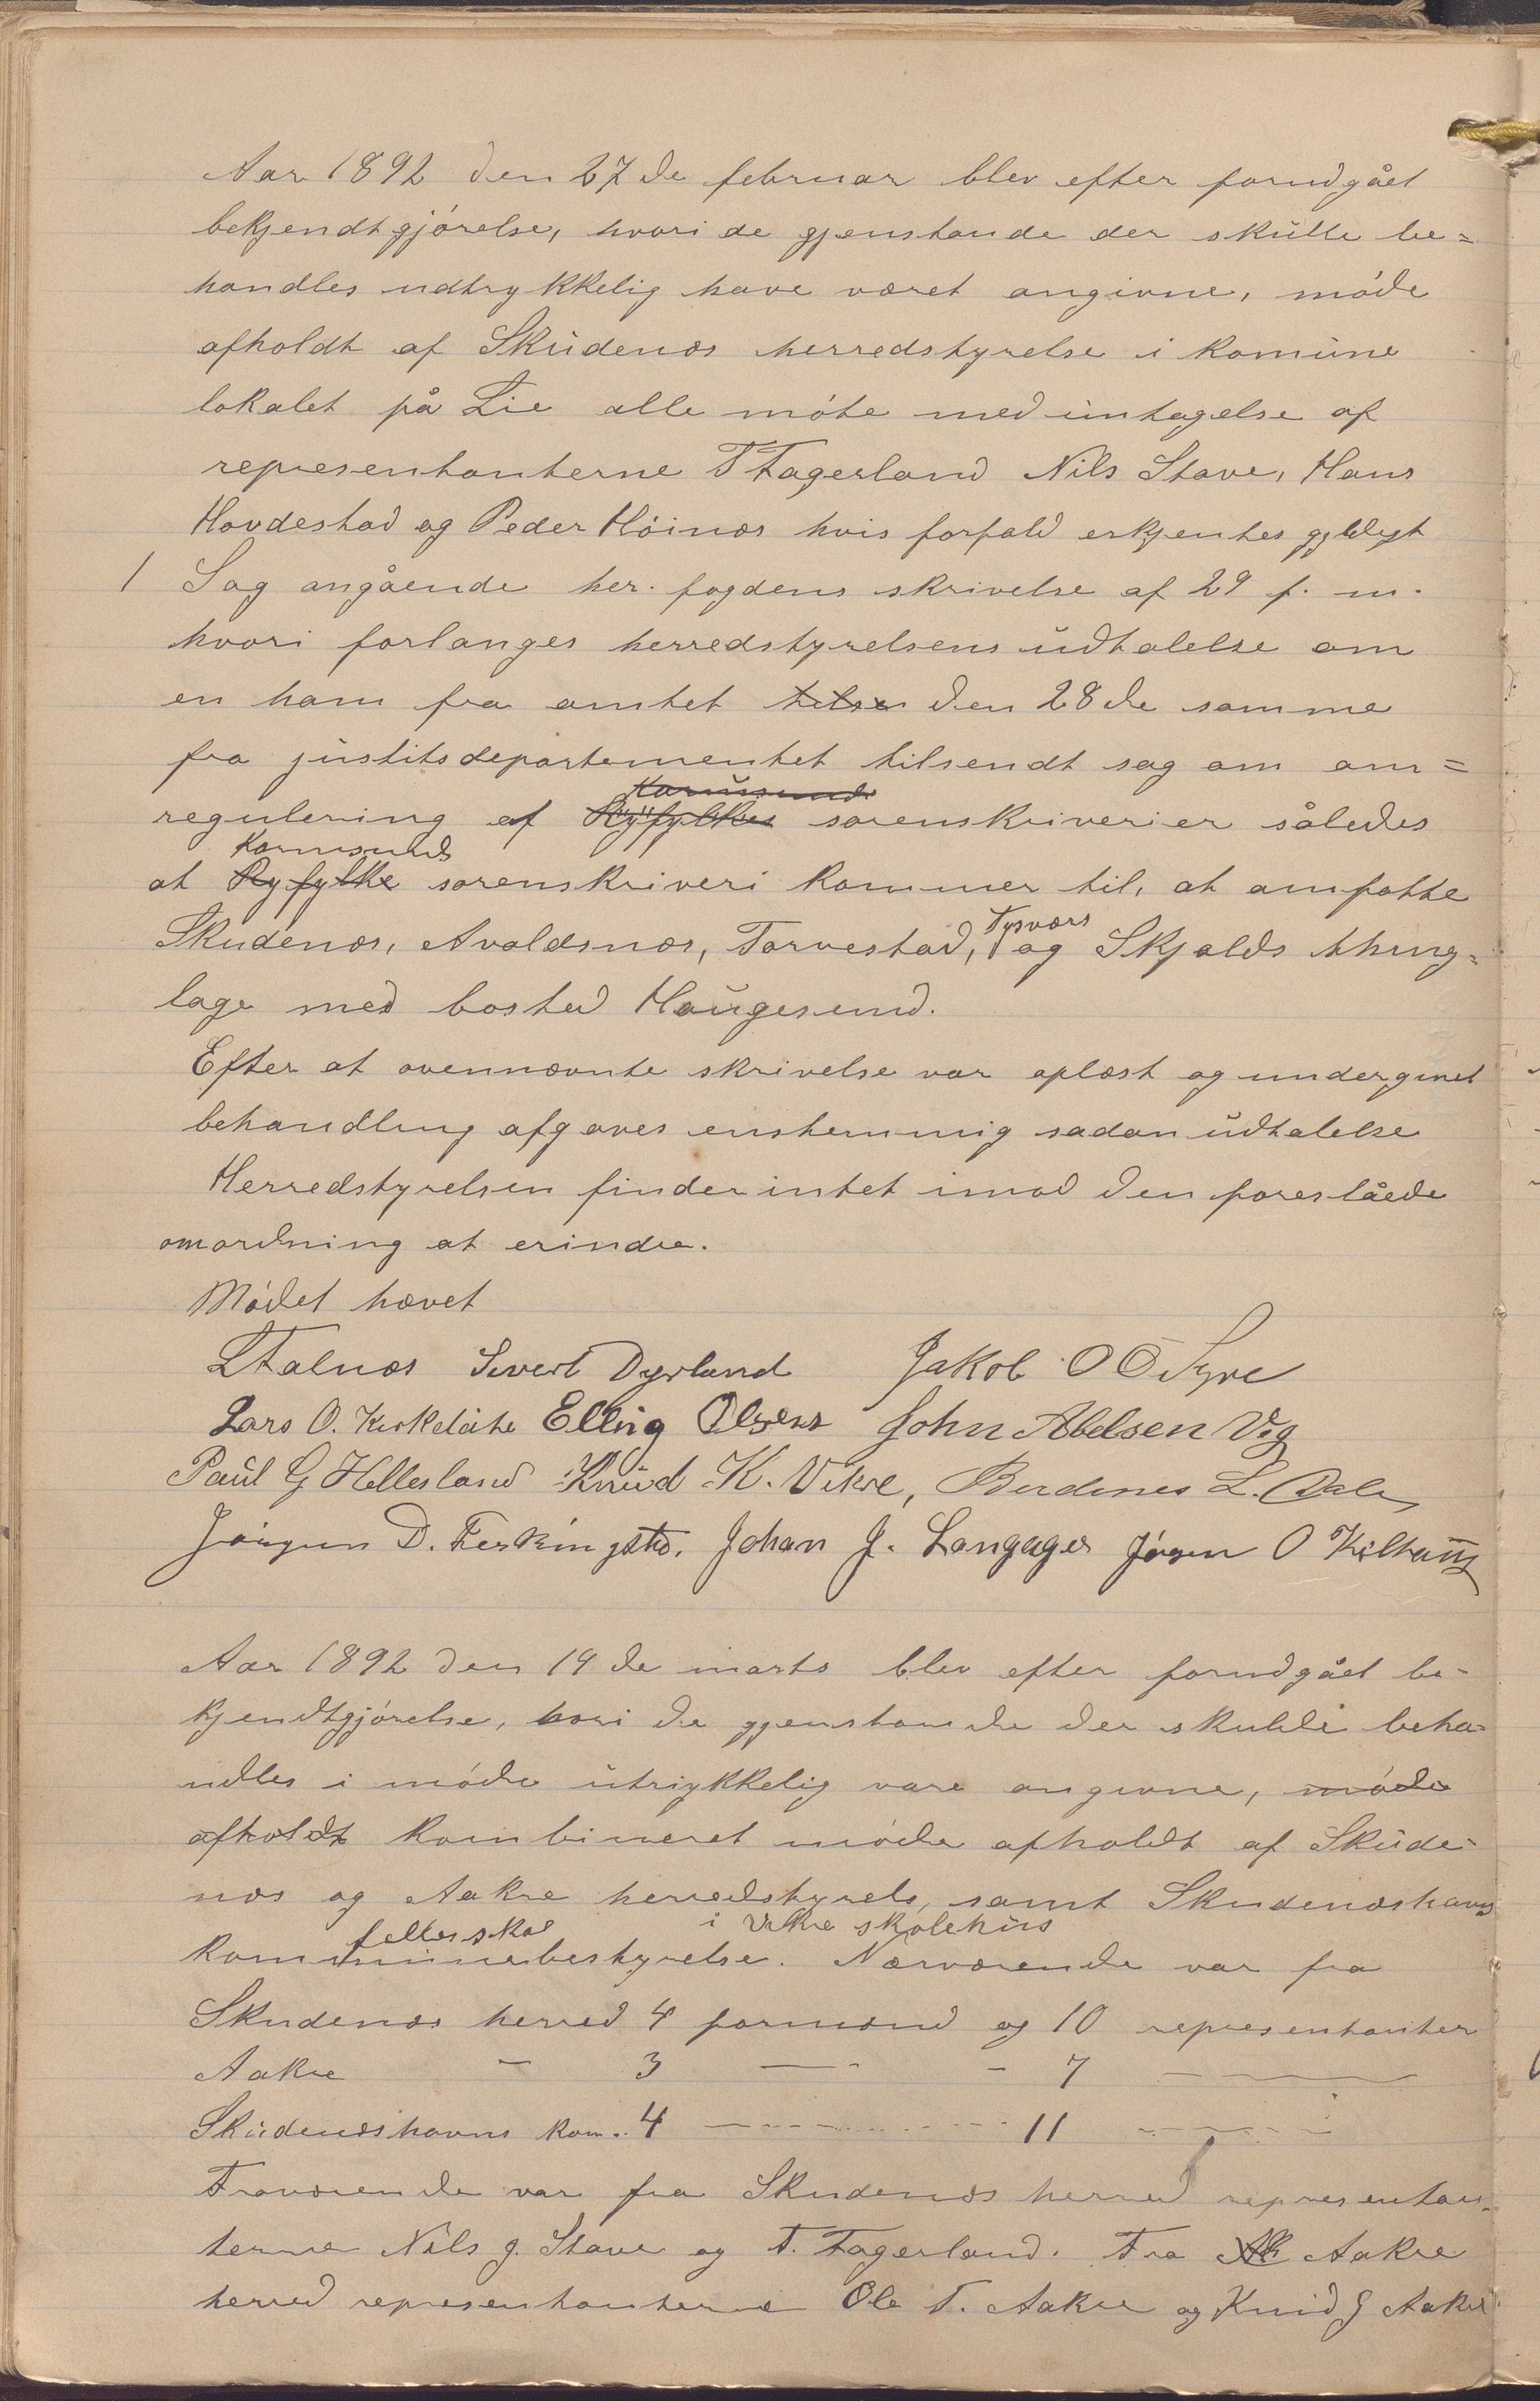 Aar 1892 den 27de februar blev efter forudgået
bekjendtgjórelse, hvori de gjenstande der skulle be=
handles udtrykkelig have været angivne, móde
afholdt af Skudenæs herredstyrelse i komune
lokalet på Lie alle móte med untagelse af
representanterne T Fagerland Nils Stave, Hans
Hovdestad og Peder Hóinæs hvis forfald erkjentes gyldigt
1 Sag angående her. fogdens skrivelse af 29 f. m.
hvori forlanges herredstyrelsens udtalelse om
en ham fra amtet tilse den 28de samme
fra justitsdepartementet tilsendt sag om om=
Karmsunds
regulering af Ryfylkes sorenskriverier således
Karmsunds
at Ryfylke sorenskriveri kommer til, at omfatte
Tysværs
Skudenæs, Avaldsnæs, Torvestad, og Skjolds thing=
lage med bosted Haugesund.
Efter at ovennævnte skrivelse var oplæst og undergivet
behandling afgaves enstemmig sadan udtalelse
Herredstyrelsen finder intet imod den foreslåede
omordning at erindre.
Módet hævet
L Falnæs Sivert Dyrland Jakob O O Syre
Lars O. Kirkeleite Elling Olsen John Abelsen Vig
Paul G Hellesland Knud K. Vikre, Berdines L. Dale
Jórgen D. Ferkingstad. Johan J. Langåger Jórgen O Kilhaug
Aar 1892 den 19de marts blev efter forudgået be-
kjendtgjórelse, hvori de gjenstande der skulde beha-
ndles i móde utrykkelig vare angivne, móde
afholdt kombineret móde afholdt af Skude-
næs og Aakre herredstyrels, samt Skudenæshavns
felleskab i Vikre skolehus
kommunebestyrelse. Nærværende var fra
Skudenæs herred 4 formænd og 10 representanter
Aakre - 3 — - 7 —
Skudenæshavns kom. 4 — 11 —
Fraværende var fra Skudenæs herred representan-
terne Nils J. Stave og T. Fagerland. Fra Ak Aakre
herred representanterne Ole T. Aakre og Knud J Aakre